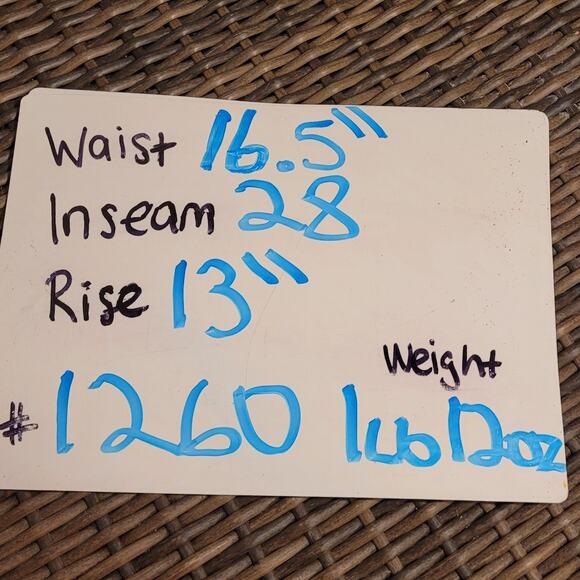 Waist 16.5"
Inseam 28
Rise 13"
Weight
# 1260 1Lb 12oz